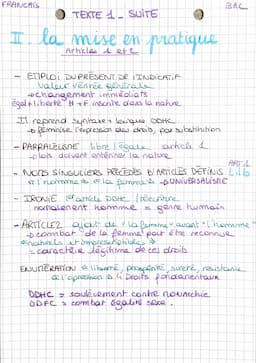 FRANCAIS
BAC
TEXTE 1 - SUITE
II. la mise en pratique
Articles 1 et 2
- EMPLOI DU PRESENT DE L'INDICATIF
valeur vérité générale
→ changement immédiats
égal + liberté H + F inscrite dans la nature
Il reprend syntaxe + lexique DDHC
→ féminise l'expression des droits, par substitution
- PARRALELISME libre / égale article 1
→ lois doivent entériner la nature
ART. 1
- NOMS SINGULIERS PRECEDES D'ARTICLES DEFINIS
"l'homme" "la femme" → UNIVERSALISME
- IRONIE article DDHC / réécriture
normalement homme = genre humain
- ARTICLE 2 ajout de "la femme" avant "l'homme"
→ combat de la femme pour être reconnue
"naturels et imprescriptibles"
= caractère légitime de ces droits
ENUMERATION "liberté, prospérité, sureté, résistance
à l'opression" 4 Droits fondamentaux
DDHC = soulèvement contre monarchie
DDFC = combat égalité sexe.